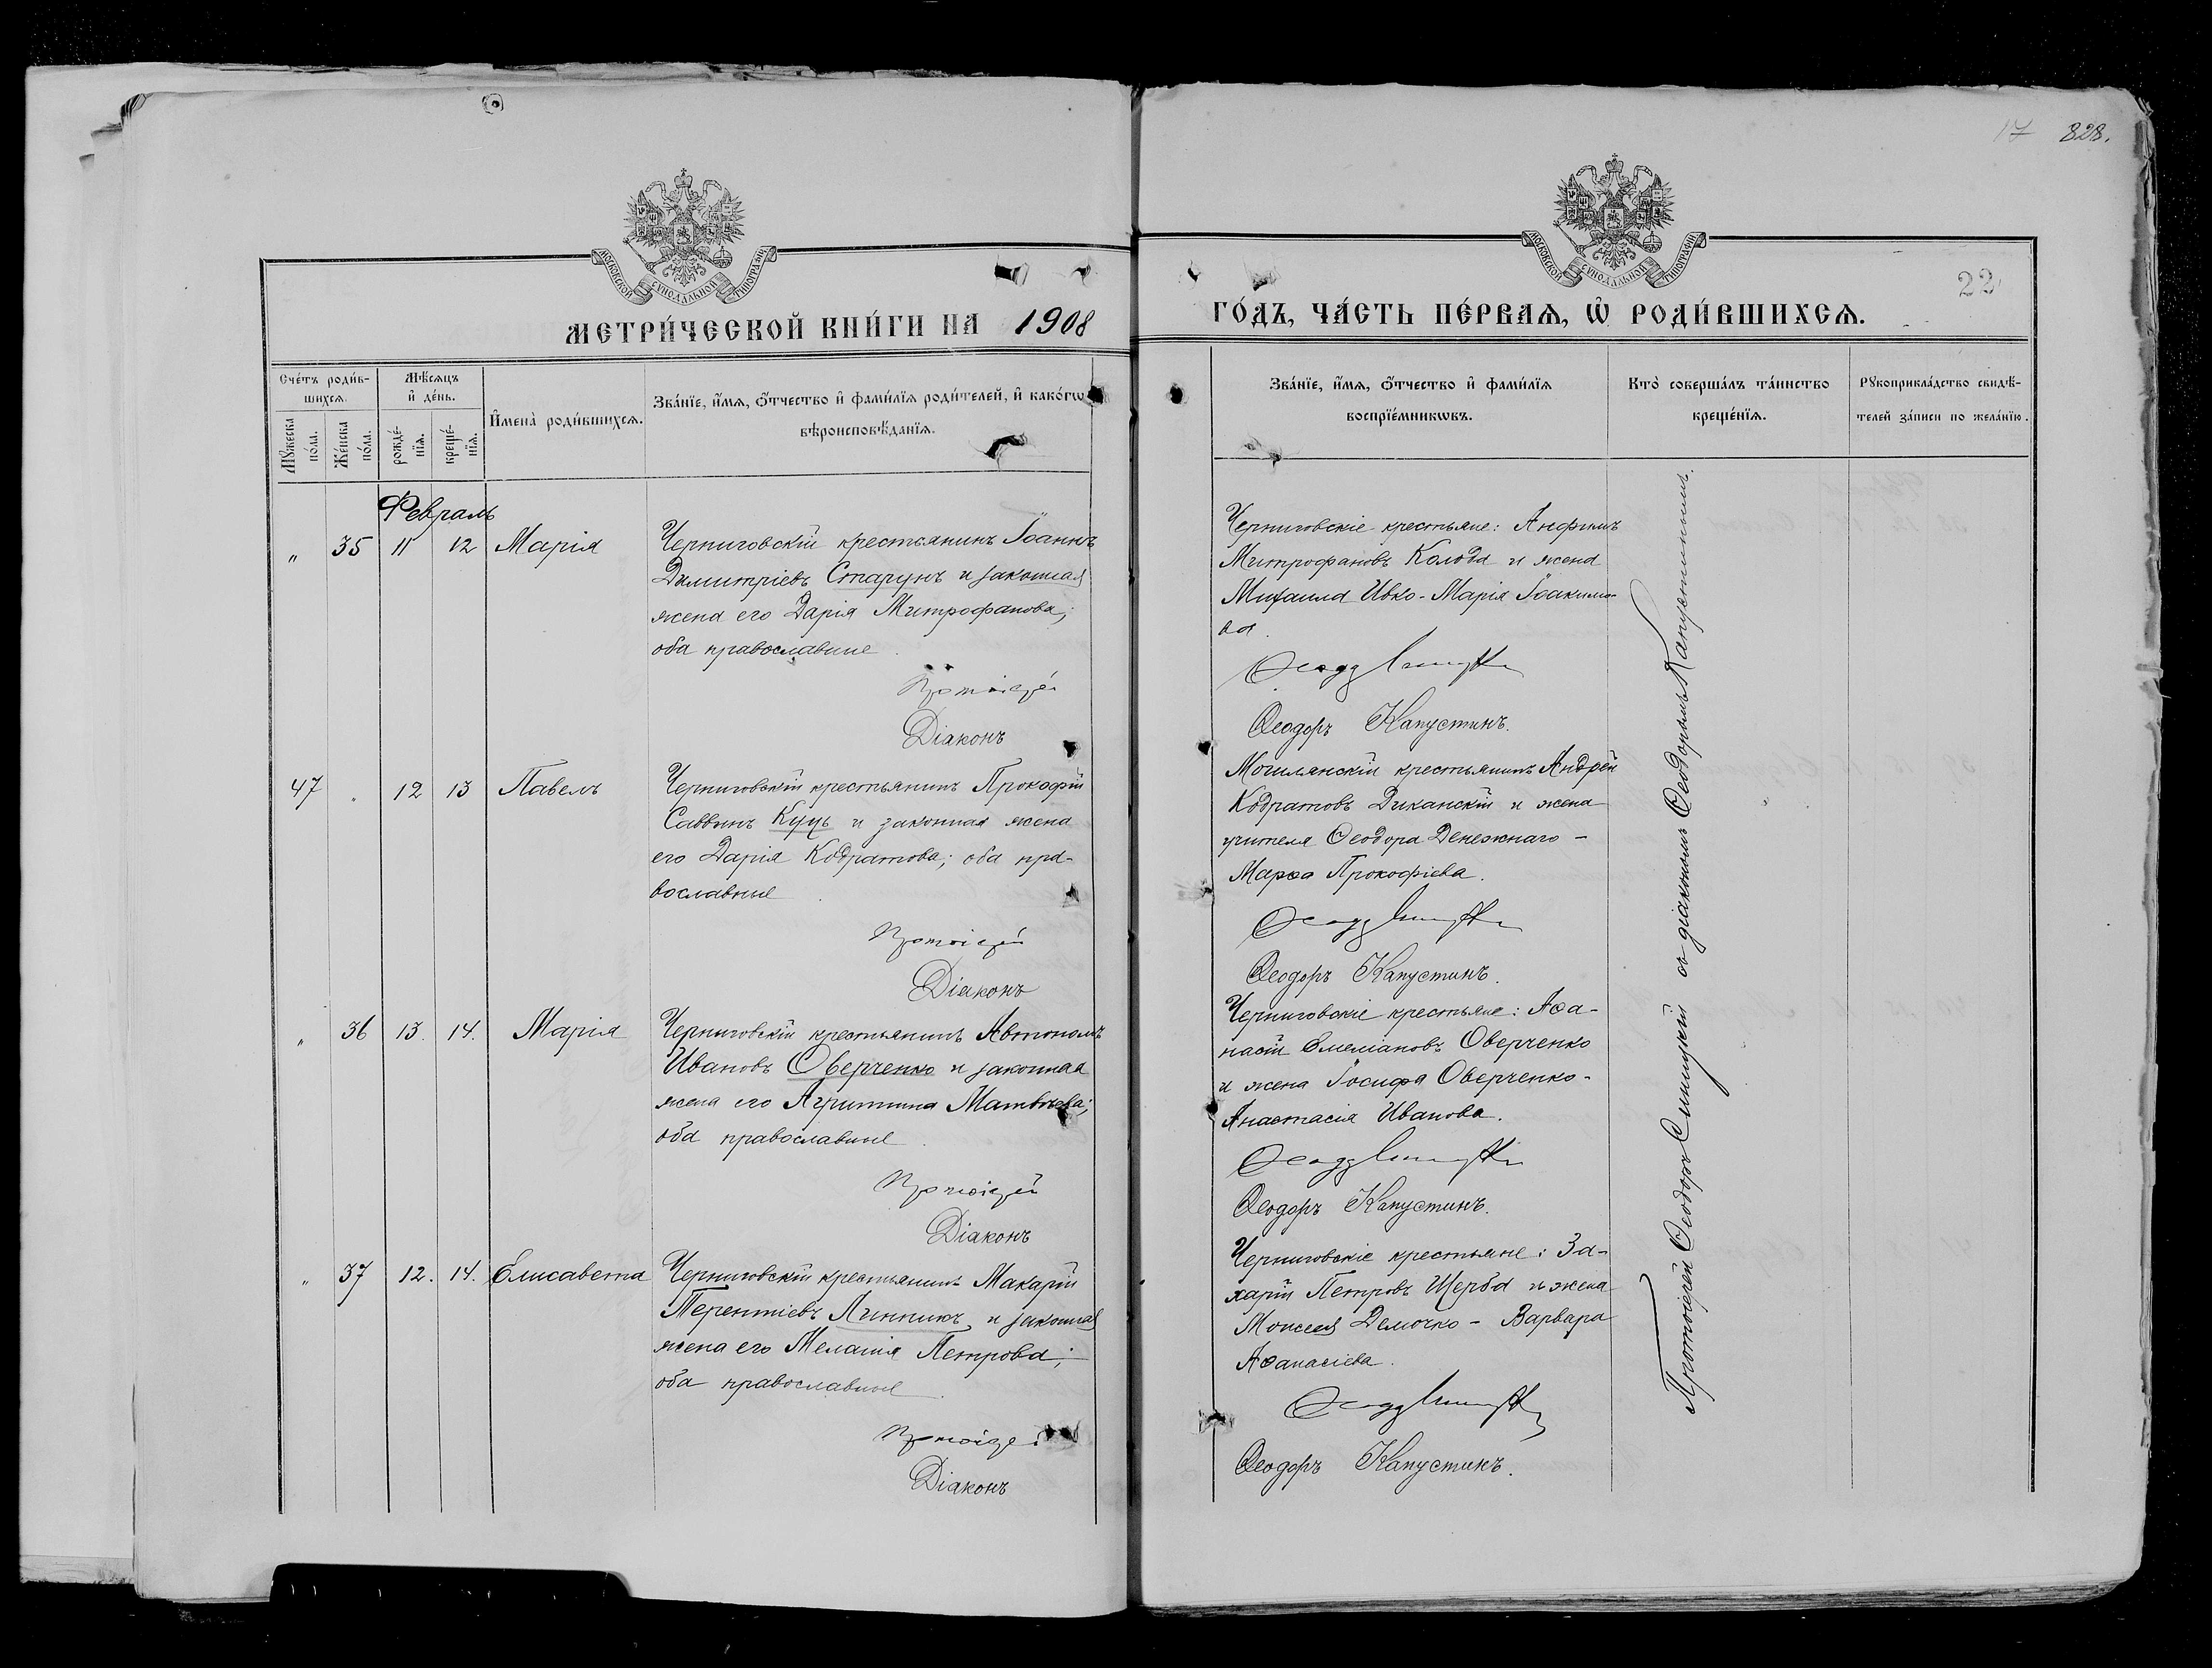 17 828.
22
МОСКОВСКОЙ СѴНОДАЛЬНОЙ ТИПОГРАФІИ
МОСКОВСКОЙ СѴНОДАЛЬНОЙ ТИПОГРАФІИ
МЕТРИ́ЧЕСКОЙ КНИ́ГИ НА 1908
ГО́ДЪ, ЧА́СТЬ ПЕ́РВАѦ, Ѽ РОДИ́ВШИХСѦ.
Сче́тъ роди́в-
шихсѧ.
Мꙋ́жеска по́ла.
Же́нска по́ла.
Мѣ́сѧцъ
и҆ де́нь.
рожде́-
нїѧ.
креще́-
нїѧ.
И҆мена̀ роди́вшихсѧ.
Зва́нїе, и҆́мѧ, ѻ҆́тчество и҆ фами́лїѧ роди́телей, и҆ како́гѡ
вѣроисповѣ́данїѧ.
Зва́нїе, и҆́мѧ, ѻ҆́тчество и҆ фами́лїѧ
воспрїе́мникѡвъ.
Кто̀ соверша́лъ та́инство
креще́нїѧ.
Рꙋкоприкла́дство свидѣ́-
телей за́писи по жела́нїю.
Февраль
„ 35 11 12 Марія
Черниговскій крестьянинъ Іоаннъ
Димитріевъ Старунъ и законная
жена его Дарія Митрофанова;
оба православные.
Протоіерей
Діаконъ
Черниговскіе крестьяне: Анфимъ
Митрофановъ Колода и жена
Михаила Ивко - Марія Іоакимо-
ва.
Ѳеодоръ Капустинъ.
47 „ 12 13 Павелъ
Черниговскій крестьянинъ Прокофій
Саввинъ Куць и законная жена
его Дарія Кодратова; оба пра-
вославные.
Протоіерей
Діаконъ
Могилянскій крестьянинъ Андрей
Кодратовъ Диканскій и жена
учителя Ѳеодора Денежнаго -
Марѳа Прокофіева.
Ѳеодоръ Капустинъ.
„ 36 13. 14. Марія
Черниговскій крестьянинъ Автономъ
Ивановъ Оверченко и законная
жена его Агриппина Матвѣева;
оба православные.
Протоіерей
Діаконъ
Черниговскіе крестьяне: Аѳа-
насій Емеліановъ Оверченко
и жена Іосифа Оверченко -
Анастасія Иванова.
Ѳеодоръ Капустинъ.
„ 37 12. 14. Елисавета
Черниговскій крестьянинъ Макарій
Терентіевъ Линникъ и законная
жена его Меланія Петрова;
оба православные.
Протоіерей
Діаконъ
Черниговскіе крестьяне: За-
харій Петровъ Щерба и жена
Моисея Демочко - Варвара
Аѳанасіева.
Ѳеодоръ Капустинъ.
Протоіерей Ѳеодоръ Синицкій съ діакономъ Ѳеодоромъ Капустинымъ.